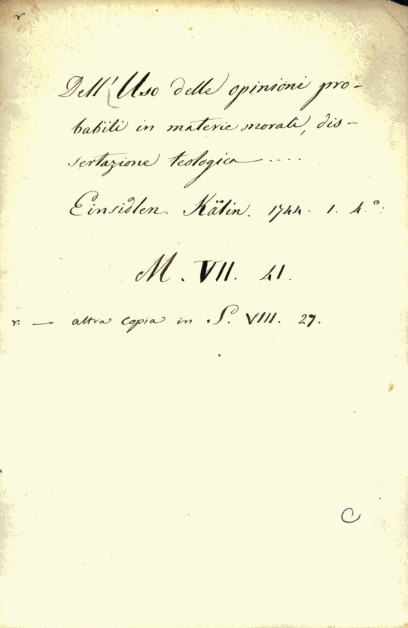 r
Dell'Uso delle opinioni pro-
babili in materie morali, dis-
sertazione teologica ....
Einsidlen. Kälin. 1744. 1. 4.º:
M. VII. 41.
r. — altra copia in S. VIII. 27.
C